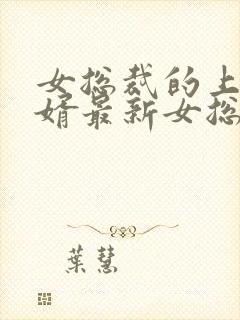 女总裁的上
婿最新女总
葉慧